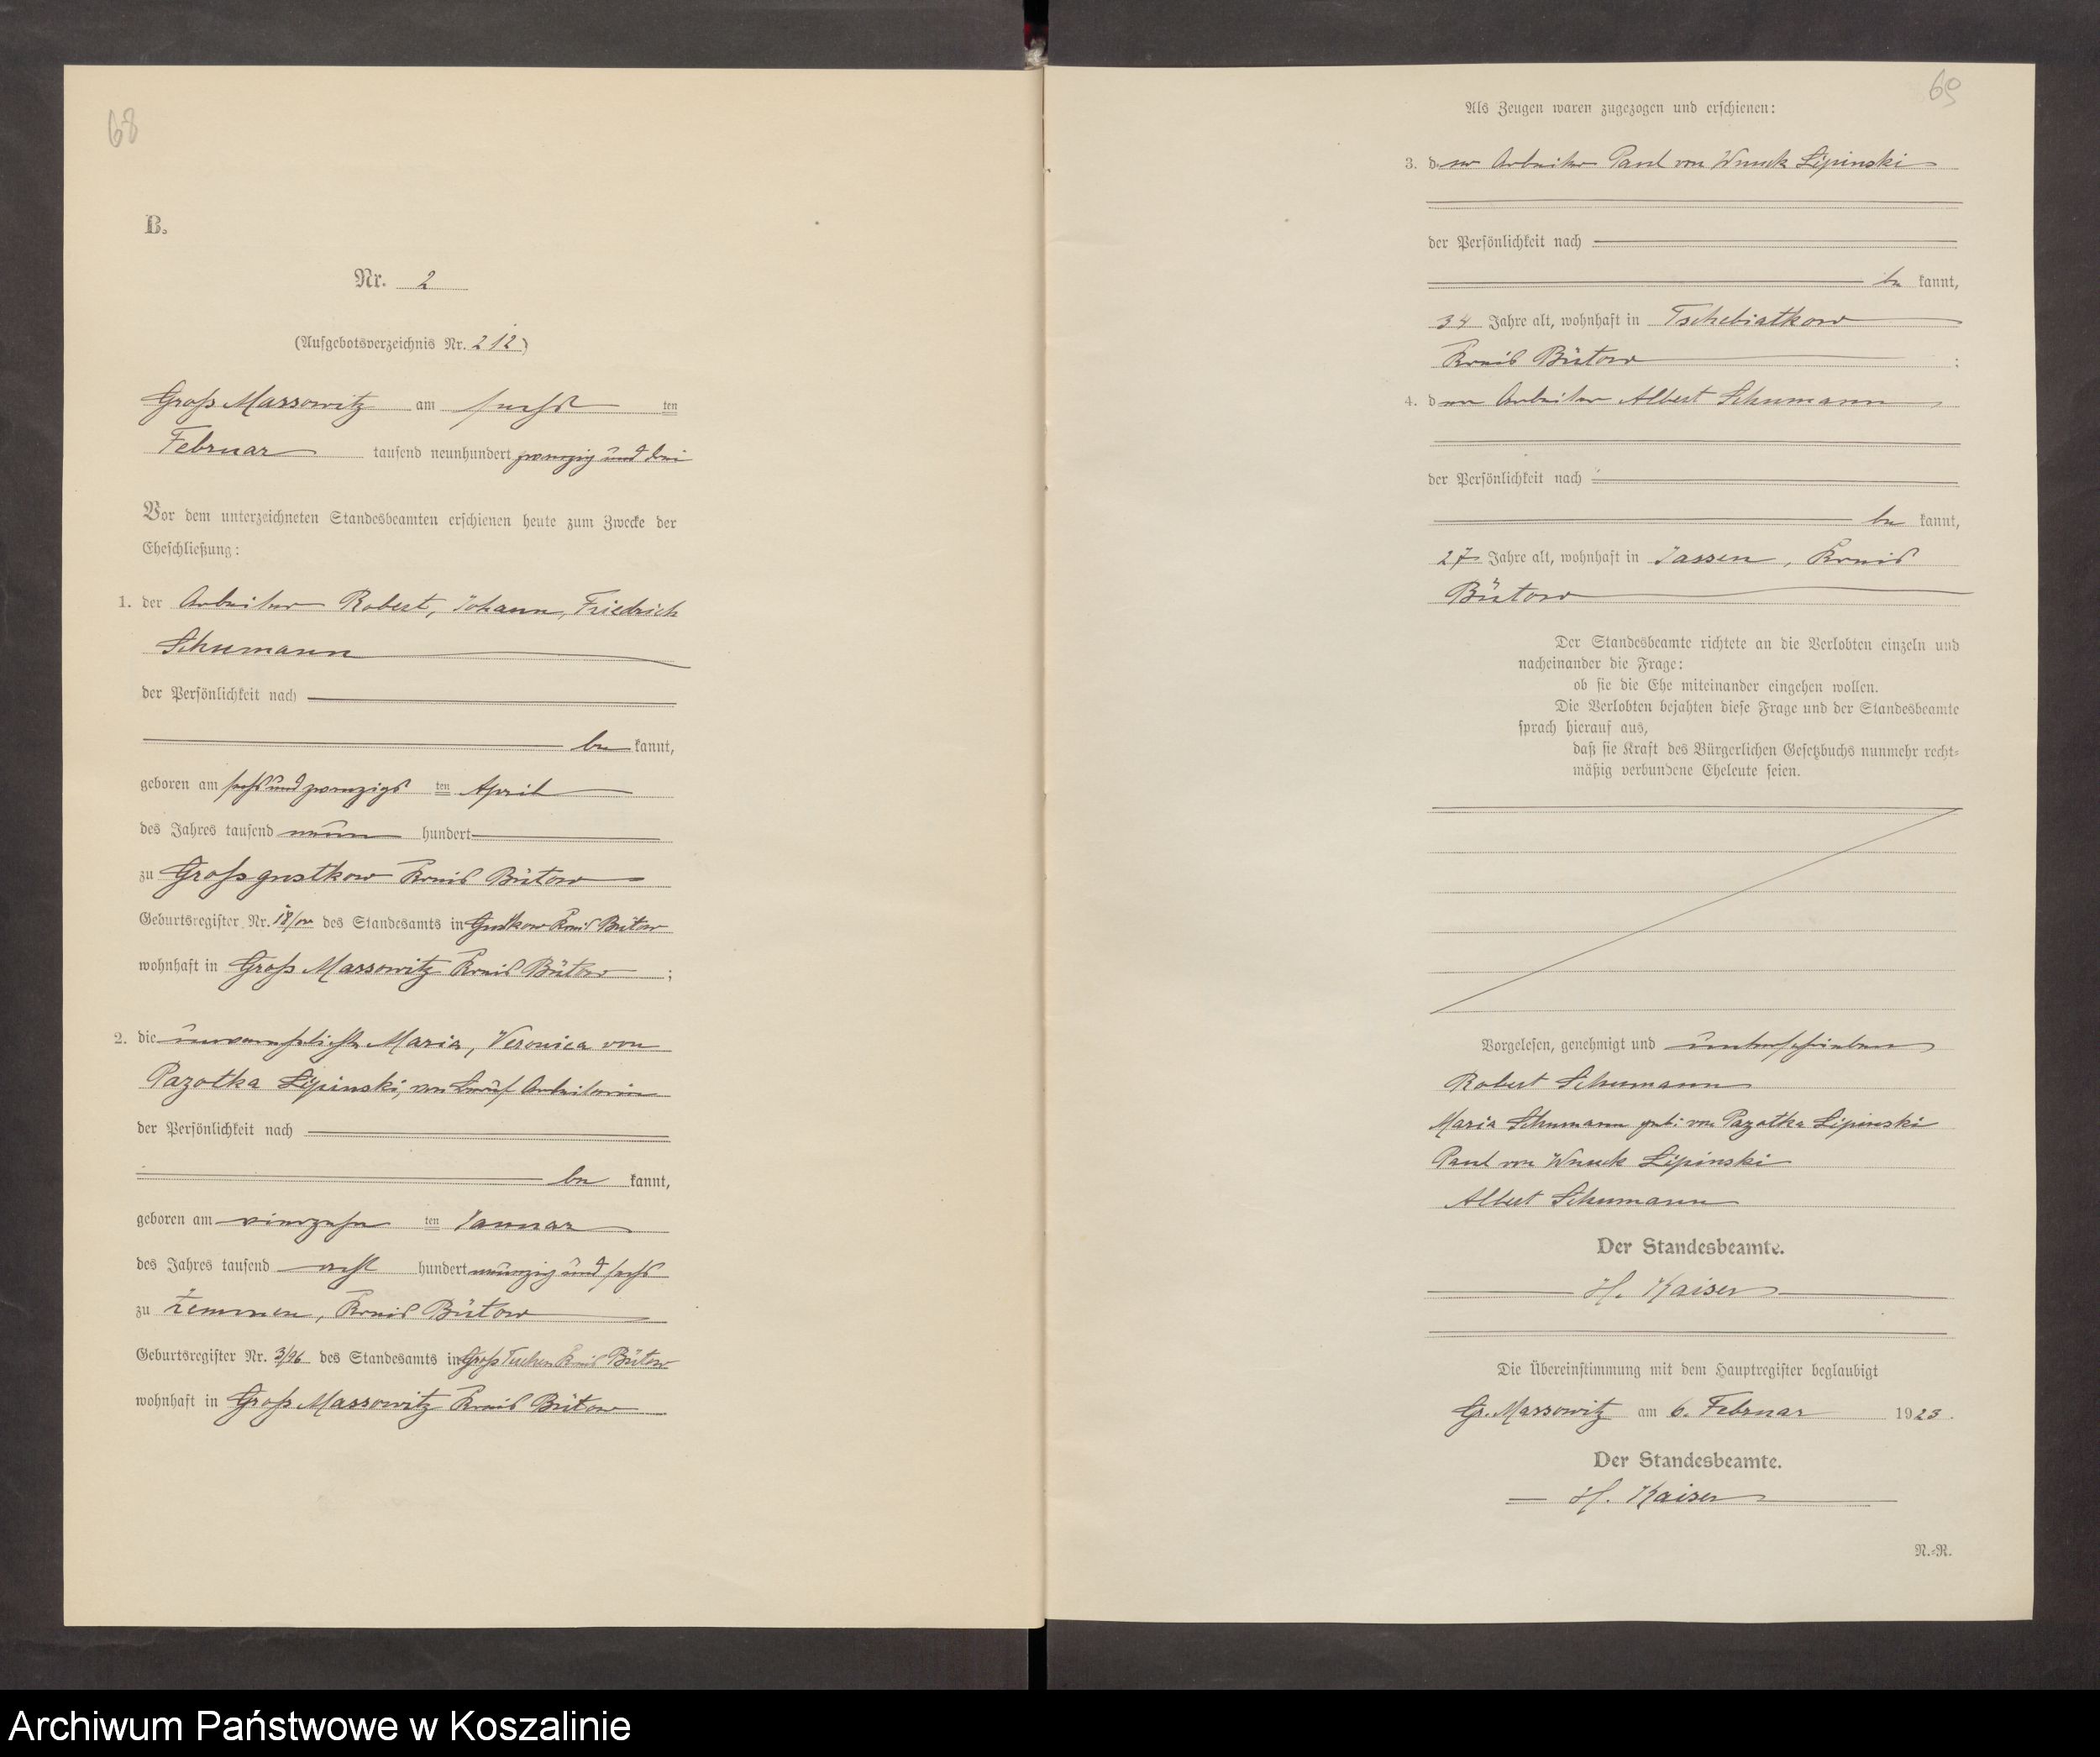 68
B.
Nr. 2
(Aufgebotsverzeichnis Nr. 212)
Groß Massowitz am sechs ten
Februar tausend neunhundert zwanzig und drei
Vor dem unterzeichneten Standesbeamten erschienen heute zum Zwecke der
Eheschließung:
1. der Arbeiter Robert, Johann, Friedrich
Schumann
der Persönlichkeit nach
be kannt,
geboren am sechsundzwanzigs ten April
des Jahres tausend neun hundert
zu Großgustkow Kreis Bütow
Geburtsregister Nr. 18/00 des Standesamts in Gustkow Kreis Bütow
wohnhaft in Groß Massowitz Kreis Bütow ;
2. die unverehelichte Maria, Veronica von
Pazotka Lipinski, von Beruf Arbeiterin
der Persönlichkeit nach
be kannt,
geboren am vierzehn ten Januar
des Jahres tausend acht hundert neunzig und sechs
zu Zemmen, Kreis Bütow
Geburtsregister Nr. 3/96 des Standesamts in Groß Tuchen Kreis Bütow
wohnhaft in Groß Massowitz Kreis Bütow
69
Als Zeugen waren zugezogen und erschienen:
3. der Arbeiter Paul von Wnuck Lipinski
der Persönlichkeit nach
be kannt,
34 Jahre alt, wohnhaft in Tschebiatkow
Kreis Bütow ;
4. der Arbeiter Albert Schumann
der Persönlichkeit nach
be kannt,
27 Jahre alt, wohnhaft in Jassen, Kreis
Bütow
Der Standesbeamte richtete an die Verlobten einzeln und
nacheinander die Frage:
ob sie die Ehe miteinander eingehen wollen.
Die Verlobten bejahten diese Frage und der Standesbeamte
sprach hierauf aus,
daß sie Kraft des Bürgerlichen Gesetzbuchs nunmehr recht-
mäßig verbundene Eheleute seien.
Vorgelesen, genehmigt und unterschrieben
Robert Schumann
Maria Schumann geb: von Pazotka Lipinski
Paul von Wnuck Lipinski
Albert Schumann
Der Standesbeamte.
H. Kaiser
Die Übereinstimmung mit dem Hauptregister beglaubigt
Gr. Massowitz am 6. Februar 1923.
Der Standesbeamte.
H. Kaiser
N.-R.
Archiwum Państwowe w Koszalinie